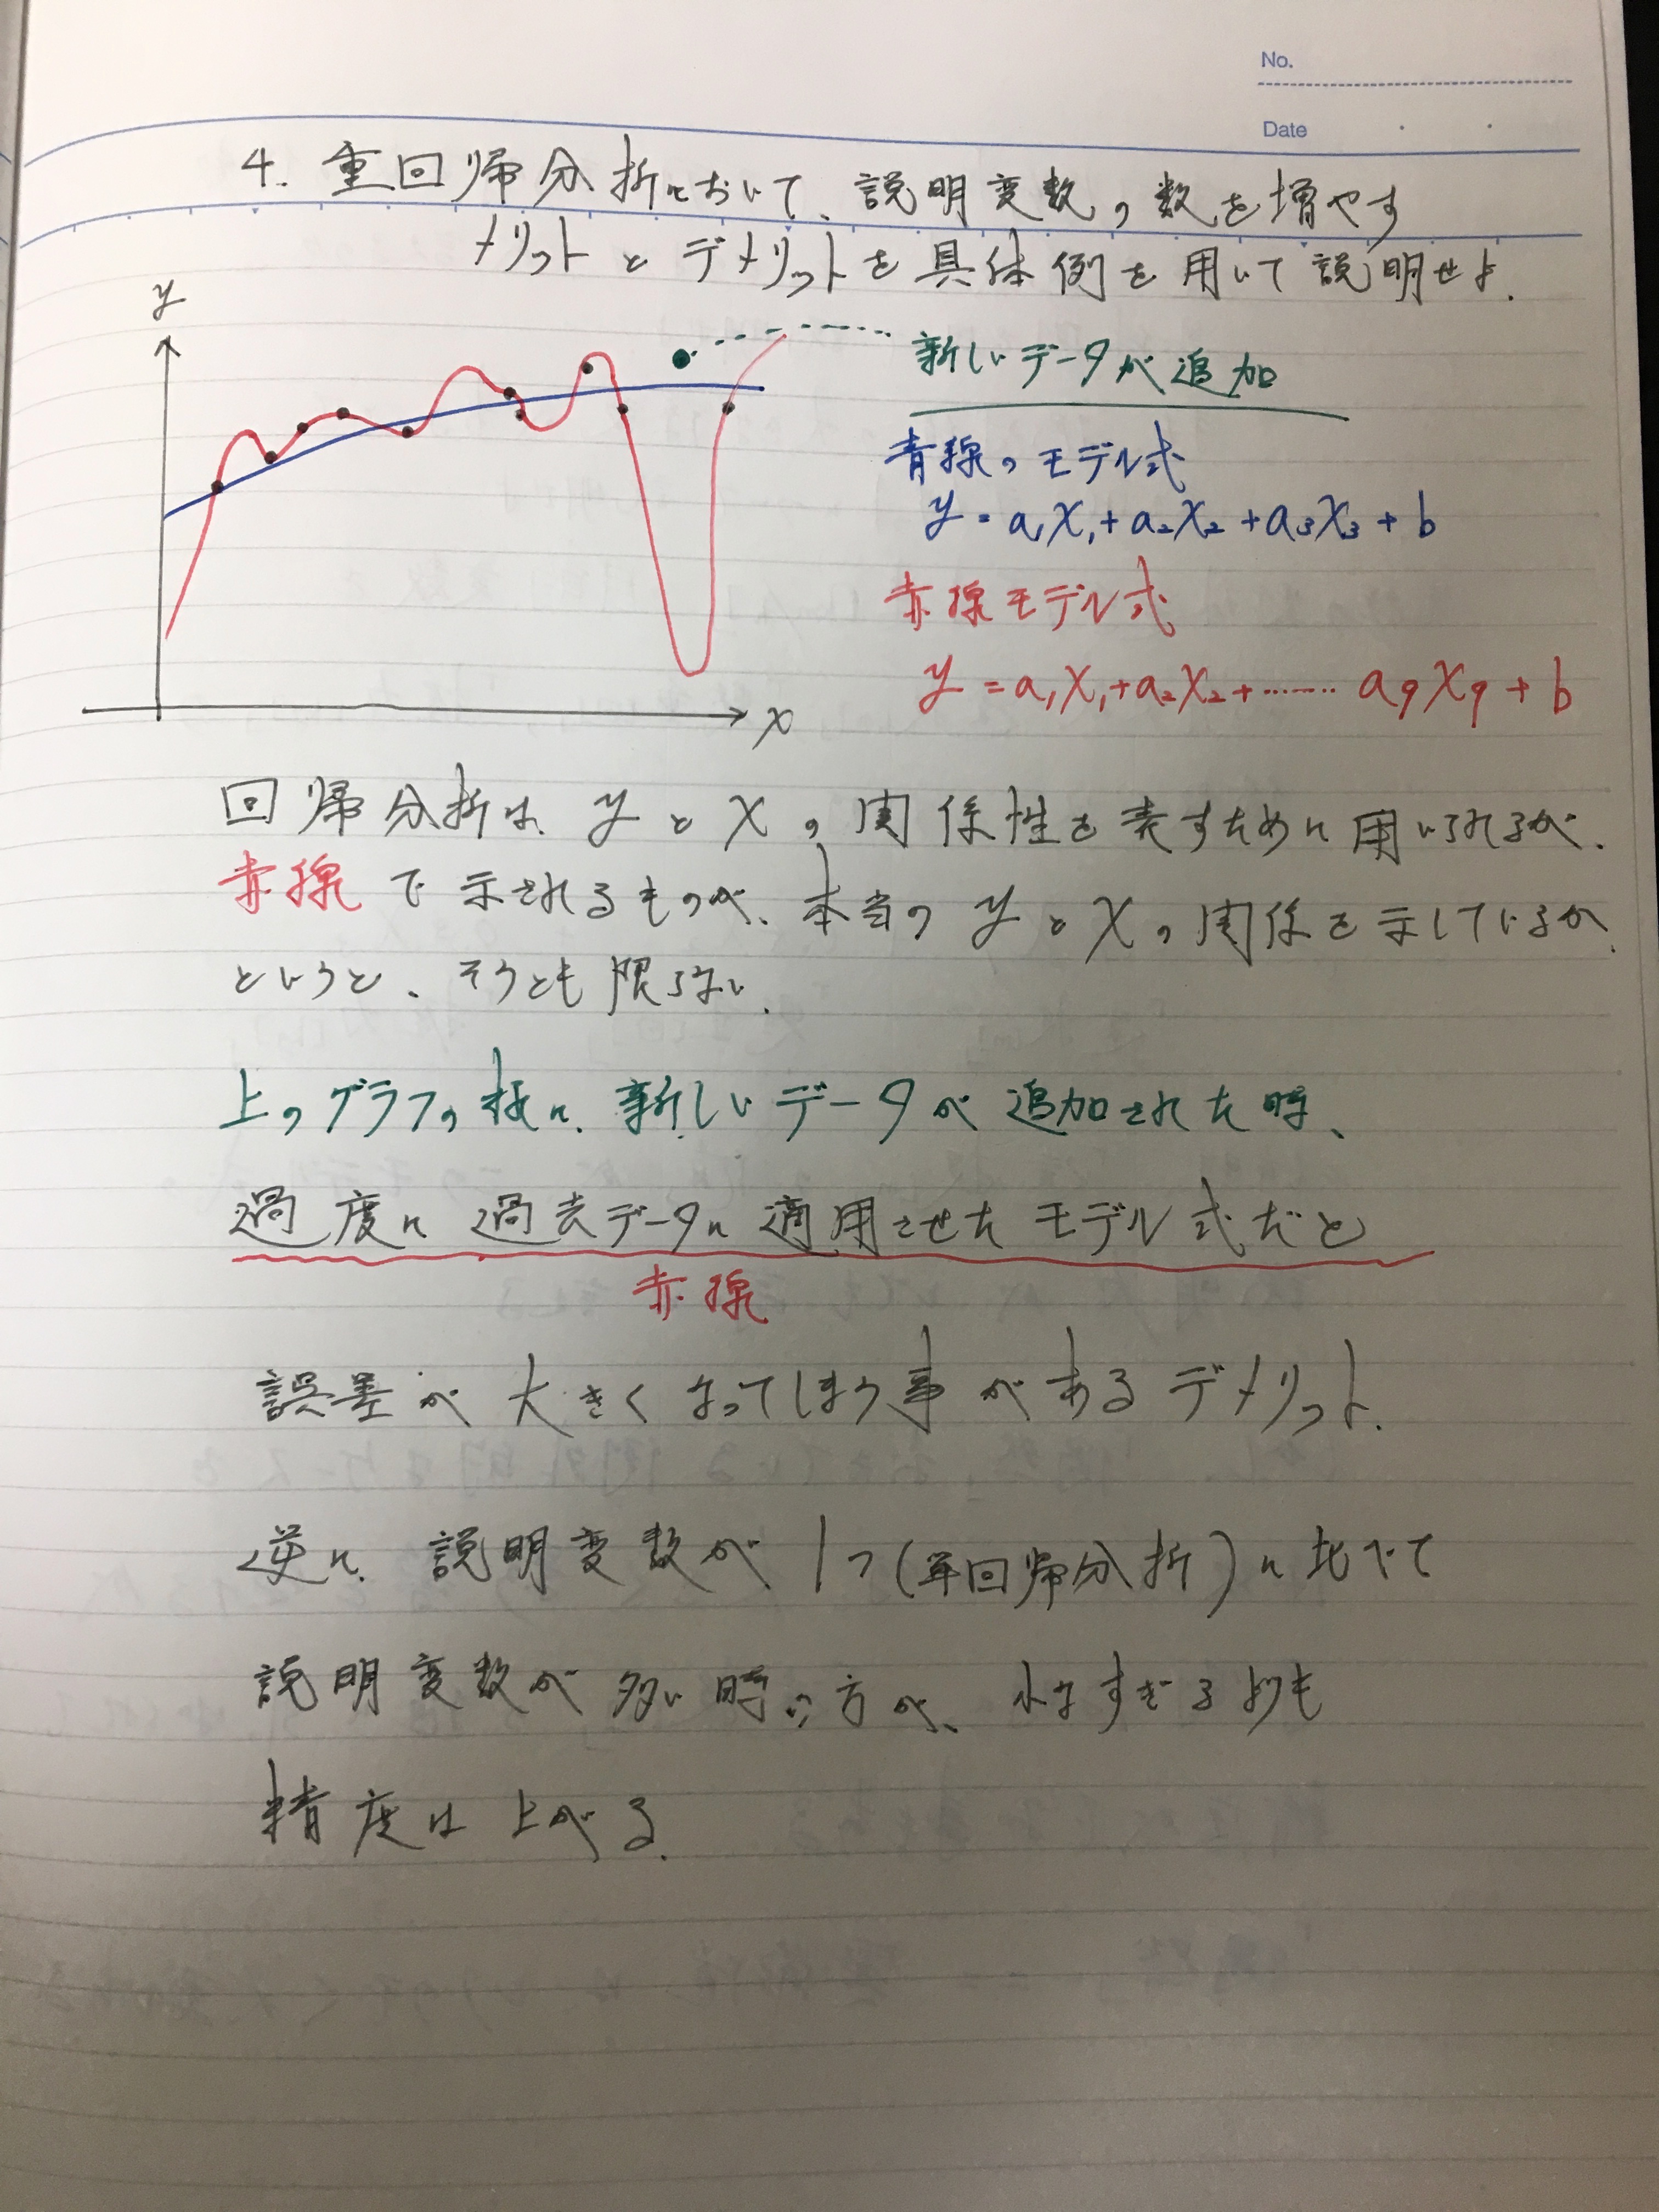 No.
Date
4. 重回帰分析において、説明変数の数を増やす
メリットとデメリットを具体例を用いて説明せよ.
y
新しいデータが追加
青線のモデル式
y = a₁x₁ + a₂x₂ + a₃x₃ + b
赤線モデル式
y = a₁x₁ + a₂x₂ + ....... a₉x₉ + b
x
回帰分析は、yとxの関係性を表すために用いられるが、
赤線で示されるものが、本当のyとxの関係を示しているか
というと、そうとも限らない.
上のグラフの様に、新しいデータが追加された時、
過度に過去データに適用させたモデル式だと
赤線
誤差が大きくなってしまう事があるデメリット.
逆に、説明変数が1つ(単回帰分析)に比べて
説明変数が多い時の方が、少なすぎるよりも
精度は上がる.